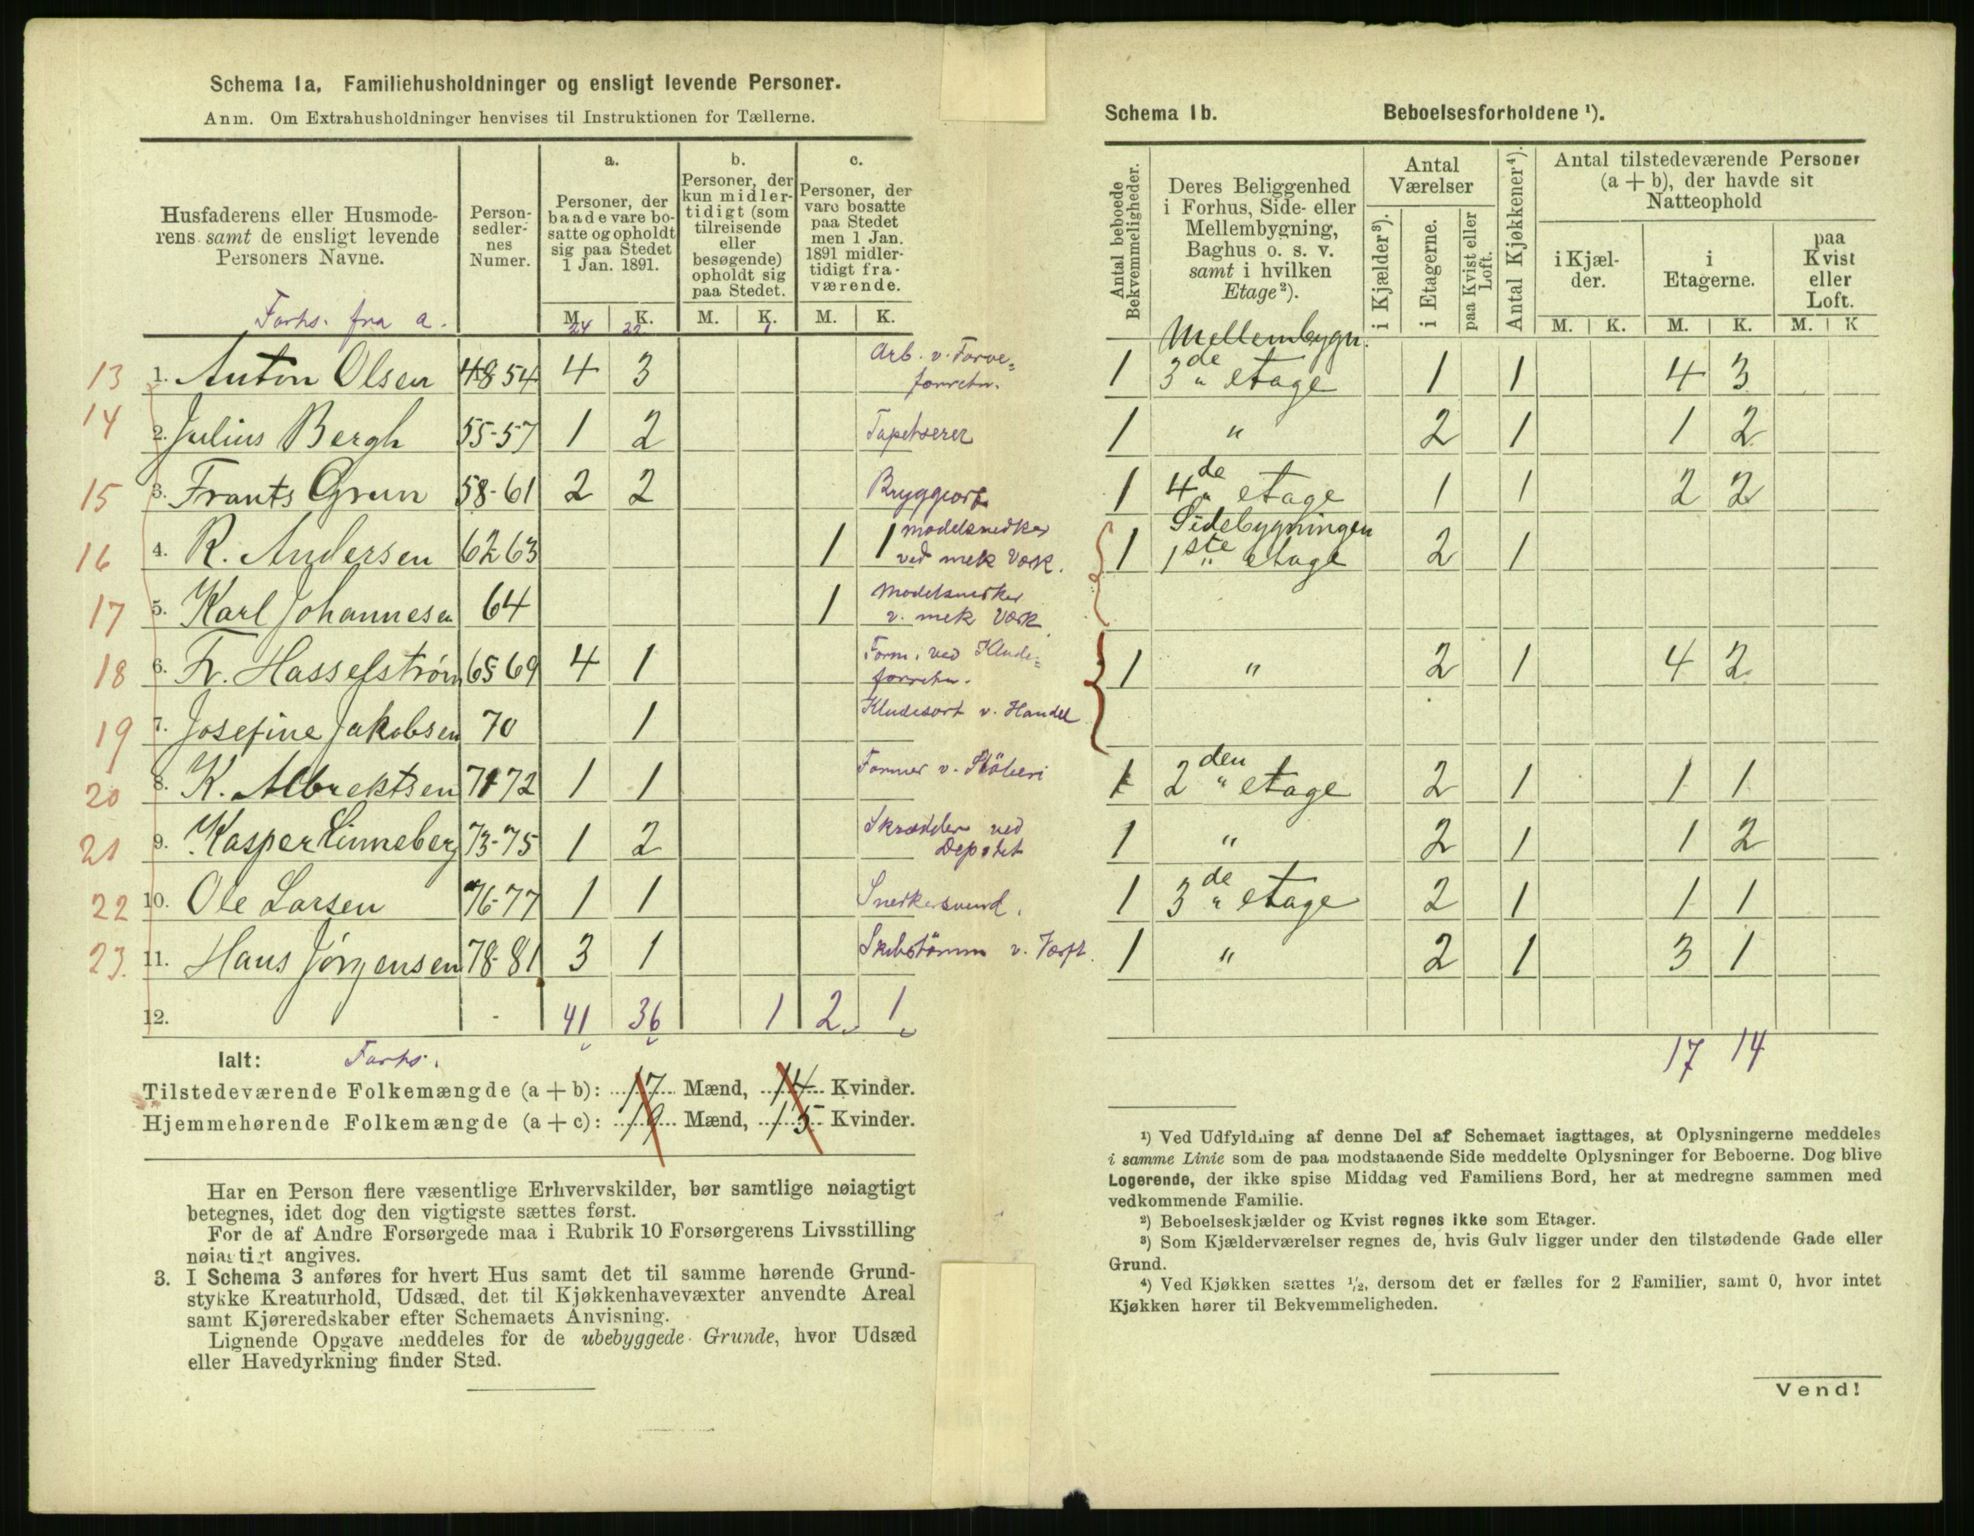 Schema 1a. Familiehusholdninger og ensligt levende Personer.
Anm. Om Extrahusholdninger henvises til Instruktionen for Tællerne.
Husfaderens eller Husmode-
rens samt de ensligt levende
Personers Navne.
Person-
sedler-
nes
Numer.
a.
Personer, der
baade vare bo-
satte og opholdt
sig paa Stedet
1 Jan. 1891.
b.
Personer, der
kun midler-
tidigt (som
tilreisende
eller
besøgende)
opholdt sig
paa Stedet.
c.
Personer, der
vare bosatte
paa Stedet
men 1 Jan.
1891 midler-
tidigt fra-
værende.
M. K. M. K. M. K.
Forhs. fra a. 24 22 1
13 1. Anton Olsen 48-54 4 3 Arb. v. Farve-
forretn.
14 2. Julius Bergh 55-57 1 2 Tapetserer
15 3. Frants Grun 58-61 2 2
16 4. R. Andersen 62-63 1 1 Modelsnedker
ved mek Værk.
17 5. Karl Johannesen 64 1 Modelsnedker
v. mek Værk.
18 6. Fr. Hasselstrøm 65-69 4 1 Form. ved Klude-
forretn.
19 7. Josefine Jakobsen 70 1 Kludesort v. Handel
20 8. K. Albrektsen 71-72 1 1 Former v. Støberi
21 9. Kasper Linneberg 73-75 1 2 Skrædder ved
Depotet
22 10. Ole Larsen 76-77 1 1 Snedkersvend.
23. 11. Hans Jørgensen 78-81 3 1 Skibstømm v. Værft.
12. - 41 36 1 2 1
Ialt: Forhs.
Tilstedeværende Folkemængde (a + b): 17 Mænd, 14 Kvinder.
Hjemmehørende Folkemængde (a + c): 19 Mænd, 15 Kvinder.
Har en Person flere væsentlige Erhvervskilder, bør samtlige nøiagtigt
betegnes, idet dog den vigtigste sættes først.
For de af Andre Forsørgede maa i Rubrik 10 Forsørgerens Livsstilling
nøiagtigt angives.
3. I Schema 3 anføres for hvert Hus samt det til samme hørende Grund-
stykke Kreaturhold, Udsæd, det til Kjøkkenhavevæxter anvendte Areal
samt Kjøreredskaber efter Schemaets Anvisning.
Lignende Opgave meddeles for de ubebyggede Grunde, hvor Udsæd
eller Havedyrkning finder Sted.
Schema 1b. Beboelsesforholdene ¹).
Antal beboede
Bekvemmeligheder.
Deres Beliggenhed
i Forhus, Side- eller
Mellembygning,
Baghus o. s. v.
samt i hvilken
Etage²).
Antal
Værelser
i Kjælder³).
i Etagerne.
paa Kvist eller
Loft.
Antal Kjøkkener⁴).
Antal tilstedeværende Personer
(a + b), der havde sit
Natteophold
i Kjæl-
der.
i
Etagerne.
paa
Kvist
eller
Loft.
M. K. M. K. M. K
Mellembygn.
1 3de etage 1 1 4 3
1 " 2 1 1 2
1 4de etage 1 1 2 2
Sidebygningen
1 1ste etage 2 1
1 " 2 1 4 2
1 2den etage 2 1 1 1
1 " 2 1 1 2
1 3de etage 2 1 1 1
1 " 2 1 3 1
17 14
¹) Ved Udfyldning af denne Del af Schemaet iagttages, at Oplysningerne meddeles
i samme Linie som de paa modstaaende Side meddelte Oplysninger for Beboerne. Dog blive
Logerende, der ikke spise Middag ved Familiens Bord, her at medregne sammen med
vedkommende Familie.
²) Beboelseskjælder og Kvist regnes ikke som Etager.
³) Som Kjælderværelser regnes de, hvis Gulv ligger under den tilstødende Gade eller
Grund.
⁴) Ved Kjøkken sættes ½, dersom det er fælles for 2 Familier, samt 0, hvor intet
Kjøkken hører til Bekvemmeligheden.
Vend!